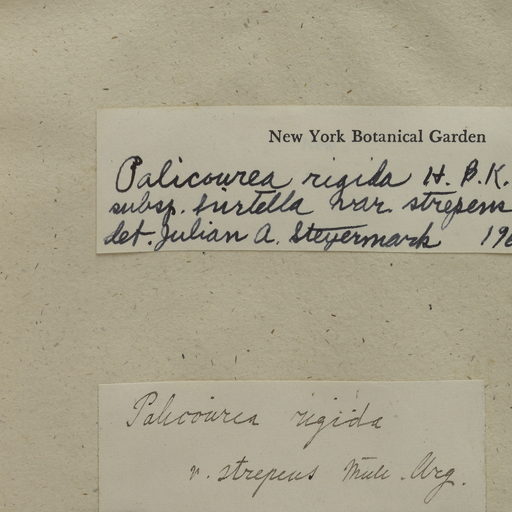 New York Botanical Garden
Palicourea rigida H. B. K.
subsp. hirtella var. strepens
det. Julian A. Steyermark 196
Palicourea rigida
v. strepens Müll. Arg.